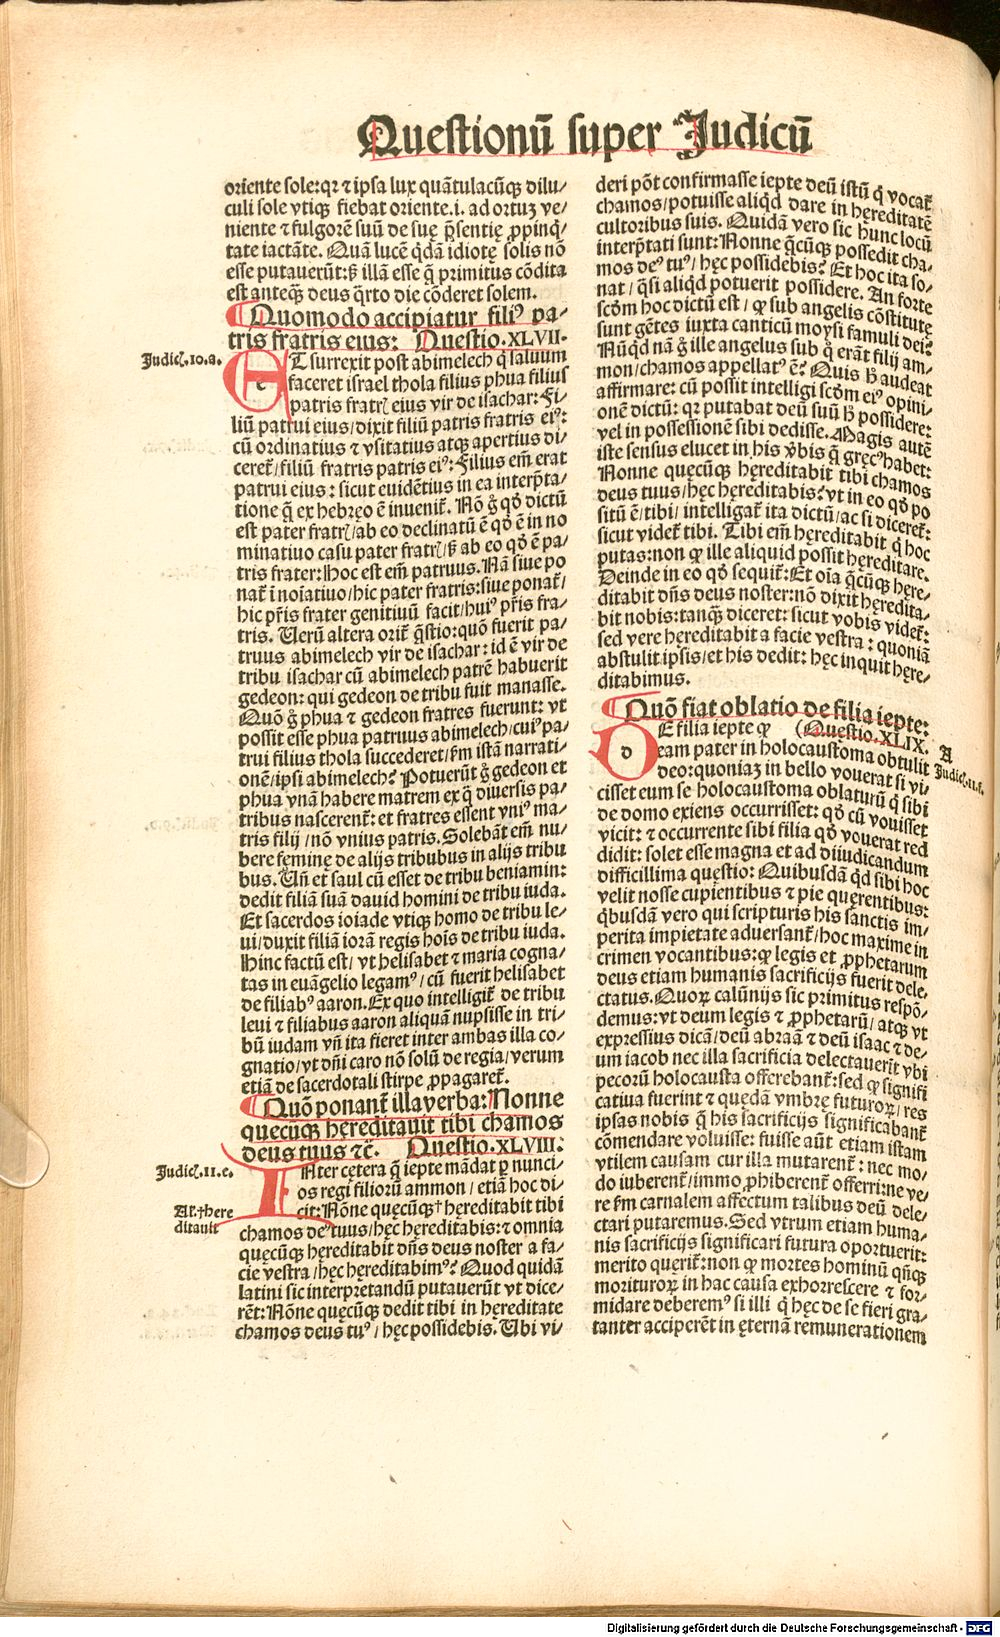 Questionū super Judicū
oriente sole:qr ⁊ ipsa lux quātulacūqꝫ dilu/
culi sole vtiqꝫ fiebat oriente.i. ad ortuꝫ ve/
niente ⁊ fulgorē suū de suę p̄sentię ꝓpinq̇/
tate iactāte. Quā lucē q̇dā idiotę solis nō
esse putauerūt:ꝫ illā esse q̄ primitus cōdita
est anteqꝫ deus q̄rto die cōderet solem.
Quomodo accipiatur filiꝰ pa-
tris fratris eius: Questio.XLVII.
Judic̄.10.a.
ET surrexit post abimelech q̇ saluum
faceret israel thola filius phua filius
patris fratrꝭ eius vir de isachar: Fi-
liū patrui eius/dixit filiū patris fratris eiꝰ:
cū ordinatius ⁊ vsitatius atqꝫ apertius di-
cereť/filiū fratris patris eiꝰ: Filius em̄ erat
patrui eius: sicut euidētius in ea interp̄ta/
tione q̄ ex hebręo ē inuenit̄. Nō g̊ qd̓ dictū
est pater fratrꝭ/ab eo declinatū ē qd̓ ē in no
minatiuo casu pater fratrꝭ/ꝫ ab eo qd̓ ē pa/
tris frater:hoc est em̄ patruus. Nā siue po
nat̄ ī noīatiuo/hic pater fratris:siue ponat̄/
hic p̄ris frater genitiuū facit/huiꝰ p̄ris fra/
tris. Uerū altera orit̄ q̄stio:quō fuerit pa/
truus abimelech vir de isachar: id ē vir de
tribu isachar cū abimelech patrē habuerit
gedeon: qui gedeon de tribu fuit manasse.
Quō g̊ phua ⁊ gedeon fratres fuerunt: vt
possit esse phua patruus abimelech/cuiꝰ pa/
trui filius thola succederet/ẜm istā narrati-
onē/ipsi abimelech? Potuerūt g̊ gedeon et
phua vnā habere matrem ex q̄ diuersis pa/
tribus nascerent̄: et fratres essent vniꝰ ma/
tris filij/nō vnius patris. Solebāt em̄ nu/
bere feminę de alijs tribubus in alijs tribu
bus. Un̄ et saul cū esset de tribu beniamin:
dedit filiā suā dauid homini de tribu iuda.
Et sacerdos ioiade vtiqꝫ homo de tribu le/
ui/duxit filiā iorā regis hoīs de tribu iuda.
Hinc factū est/ vt helisabet ⁊ maria cogna/
tas in euāgelio legamꝰ/ cū fuerit helisabet
de filiabꝰ aaron. Ex quo intelligit̄ de tribu
leui ⁊ filiabus aaron aliquā nupsisse in tri/
bū iudam vn̄ ita fieret inter ambas illa co/
gnatio/vt dn̄i caro nō solū de regia/verum
etiā de sacerdotali stirpe ꝓpagaret̄.
Quō ponant̄ illa verba: Nonne
quecūqꝫ hęreditauit tibi chamos
deus tuus ⁊c̄. Questio.XLVIII.
Judic̄.11.e.
INter cętera q̄ iepte mādat ꝑ nunci/
os regi filiorū ammon/ etiā hoc di/
cit: Nōne quęcūqꝫ† hęreditabit tibi
Al.†here
ditauit
chamos deꝰ tuus/hęc hęreditabis:⁊ omnia
quęcūqꝫ hęreditabit dn̄s deus noster a fa/
cie vestra/hęc hęreditabimꝰ? Quod quidā
latini sic interpretandū putauerūt vt dice/
rēt: Nōne quęcūqꝫ dedit tibi in hęreditate
chamos deus tuꝰ/hęc possidebis. Ubi vi/
deri pōt confirmasse iepte deū istū q̇ vocat̄
chamos/potuisse aliqd̓ dare in hęreditatē
cultoribus suis. Quidā vero sic hunc locū
interp̄tati sunt: Nonne q̄cūqꝫ possedit cha/
mos deꝰ tuꝰ/ hęc possidebis? Et hoc ita so/
nat/q̇si aliqd̓ potuerit possidere. An forte
scd̄m hoc dictū est/ ꝙ sub angelis cōstitutę
sunt gētes iuxta canticū moysi famuli dei?
Nūqd̓ nā g̊ ille angelus sub q̊ erāt filij am/
mon/chamos appellatꝰ ē? Quis ħ audeat
affirmare: cū possit intelligi scd̄m eiꝰ opini/
onē dictū: qr putabat deū suū ħ possidere:
vel in possessionē sibi dedisse. Magis autē
iste sensus elucet in his v̓bis q̄ gręcꝰ habet:
Nonne quęcūqꝫ hęreditabit tibi chamos
deus tuus/hęc hęreditabis? vt in eo qd̓ po
sitū ē/tibi/ intelligat̄ ita dictū/ac si diceret̄:
sicut videt̄ tibi. Tibi em̄ hęreditabit q̇ hoc
putas:non ꝙ ille aliquid possit hęreditare.
Deinde in eo qd̓ sequit̄: Et oīa q̄cūqꝫ hęre/
ditabit dn̄s deus noster:nō dixit hęredita/
bit nobis: tanqꝫ diceret: sicut vobis videt̄:
sed vere hęreditabit a facie vestra: quoniā
abstulit ipsis/et his dedit: hęc inquit hęre/
ditabimus.
Quō fiat oblatio de filia iepte:
Questio.XLIX.
A
Judic̄.11.f.
DE filia iepte ꝙ
eam pater in holocaustoma obtulit
deo: quoniaꝫ in bello vouerat si vi/
cisset eum se holocaustoma oblaturū q̇ sibi
de domo exiens occurrisset: qd̓ cū vouisset
vicit: ⁊ occurrente sibi filia qd̓ vouerat red
didit: solet esse magna et ad diiudicandum
difficillima quęstio: Quibusdā qd̓ sibi hoc
velit nosse cupientibus ⁊ pie quęrentibus:
q̇busdā vero qui scripturis his sanctis im/
perita impietate aduersant̄/hoc maxime in
crimen vocantibus: ꝙ legis et ꝓphetarum
deus etiam humanis sacrificijs fuerit dele/
ctatus. Quoꝝ calūnijs sic primitus respō/
demus: vt deum legis ⁊ ꝓphetarū/ atqꝫ vt
expressius dicā/deū abraā ⁊ deū isaac ⁊ de/
um iacob nec illa sacrificia delectauerit vbi
pecorū holocausta offerebant̄: sed ꝙ signifi
catiua fuerint ⁊ quędā vmbrę futuroꝝ/ res
ipsas nobis q̄ his sacrificijs significabant̄
cōmendare voluisse: fuisse aūt etiam istam
vtilem causam cur illa mutarent̄: nec mo/
do iuberent̄/immo ꝓhiberent̄ offerri: ne ve/
re ẜm carnalem affectum talibus deū dele/
ctari putaremus. Sed vtrum etiam huma/
nis sacrificijs significari futura oportuerit:
merito querit̄: non ꝙ mortes hominū qn̄qꝫ
morituroꝝ in hac causa exhorrescere ⁊ for/
midare deberemꝰ si illi q̇ hęc de se fieri gra/
tanter acciperēt in ęternā remunerationem
Digitalisierung gefördert durch die Deutsche Forschungsgemeinschaft - DFG